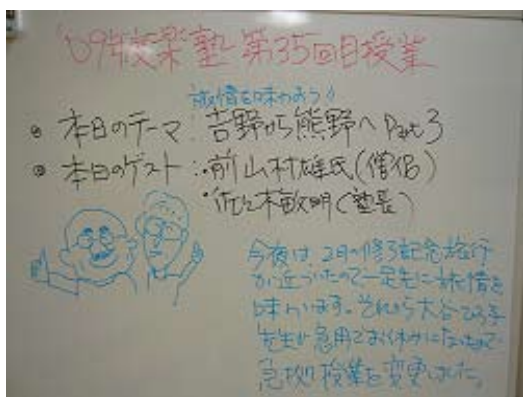 '09年校楽塾 第35回目授業
旅情を味わおう!
本日のテーマ:吉野から熊野へ Part3
本日のゲスト:・前山村雄氏(僧侶)
・佐々木敏明(塾長)
今夜は2月の修了記念旅行
が近づいたので一足先に旅情を
味わいます。それから大谷ひろ子
先生が急用でお休みになったので
急拠授業を変更しました。